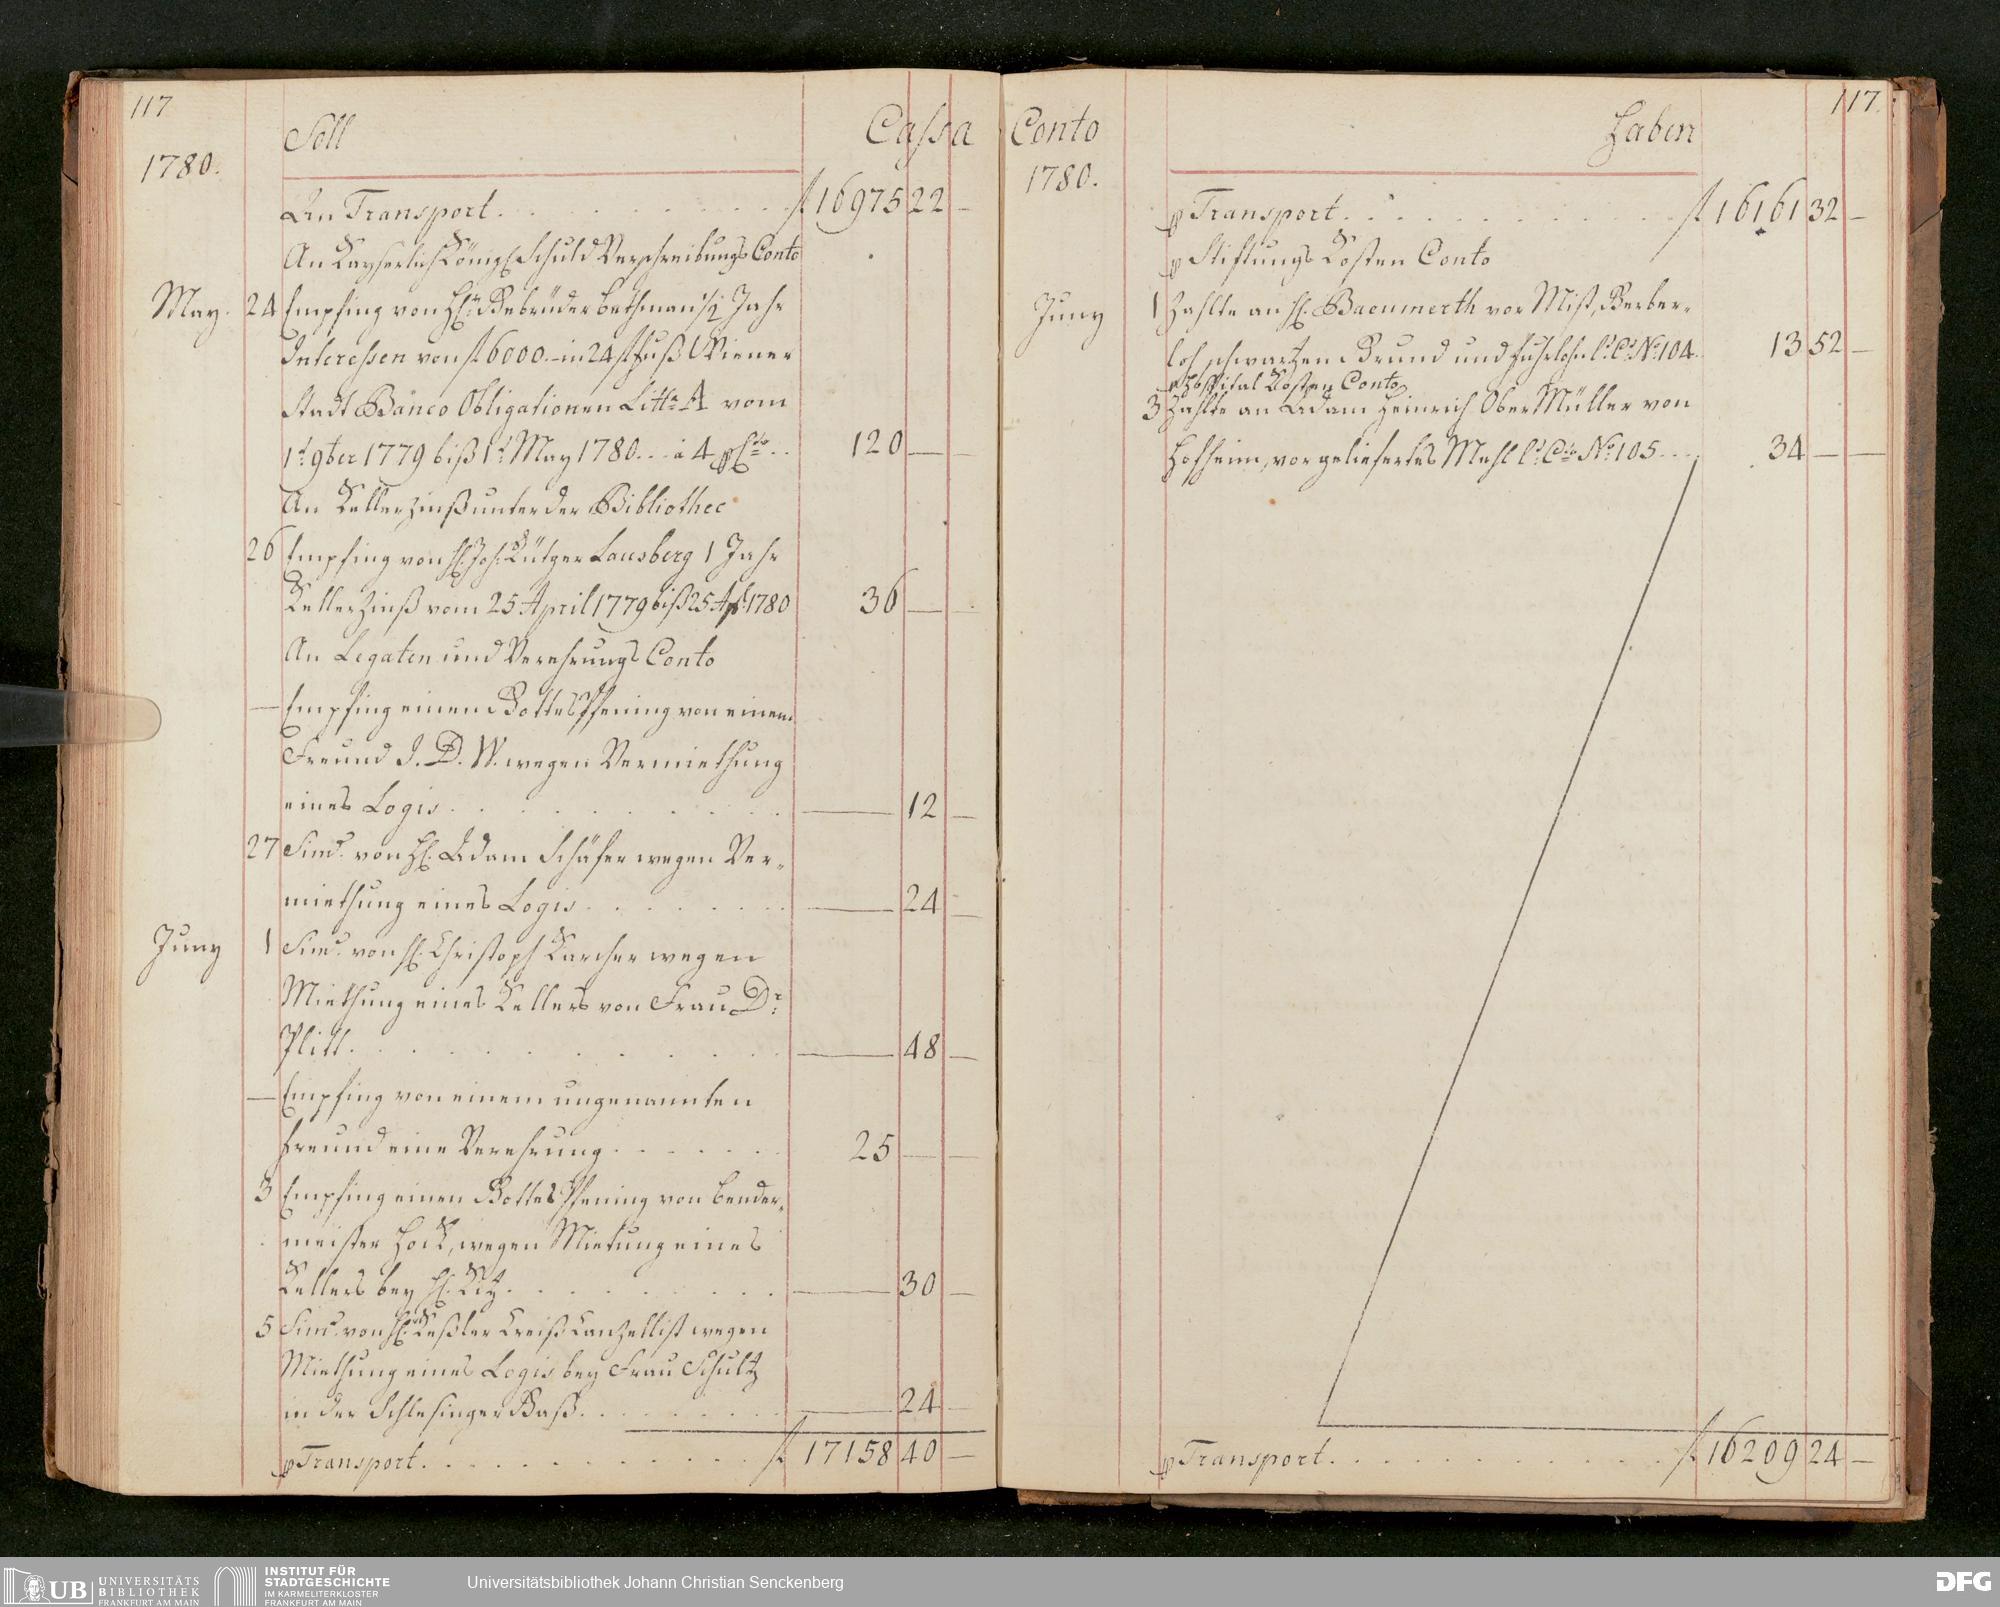 117
Soll Cassa
1780.
An Transport . . . . . . . . f 16975 22 —
An Kayserlich Königl. Schuld Verschreibungs Conto
May. 24 Empfing von Hh. Gebrüder Bethman 1/2 Jahr
Interessen von f 6000.– in 24 f fuß Wiener
Stadt Banco Obligationen Litt. A vom
1t. 9ber 1779 biß 1t. May 1780 . . . a 4 pCto. . . 120 — —
An Kellerzinß unter der Bibliothec
26 Empfing von H. Joh. Rütger Lausberg 1 Jahr
Kellerzinß vom 25 April 1779 biß 25 Apl. 1780 36 — —
An Legaten und Verehrungs Conto
— Empfing einen Gottes Pfening von einem
Freund J. D. W. wegen Vermiethung
eines Logis . . . . . . . . — 12 —
27 Simd. von H. Adam Schäfer wegen Ver-
miethung eines Logis . . . . . . — 24 —
Juny 1 Simd. von H. Christoph Karcher wegen
Miethung eines Kellers von Frau Dr.
Plitt . . . . . . . . — 48 —
— Empfing von einem ungenannten
freund eine Verehrung . . . . . . 25 — —
3 Empfing einen Gottes Pfening von Bender-
meister Hock, wegen Mietung eines
Kellers bey H. Kitz . . . . . . . — 30 —
5 Simd. von H. Keßler Creiß Canzellist wegen
Miethung eines Logis bey Frau Schultz
in der Schlesinger Gaß . . . . . . — 24 —
p Transport . . . . . . . . . f 17158 40 —
117.
Conto Haben
1780.
p Transport . . . . . . . . . f 16161 32 —
p Stiftungs Kosten Conto
Juny 1 Zahlte an H. Baeumerth vor Mist, Gerber-
loh, schwartzen Grund und fuhrlohn l. C. No. 104. 13 52 —
p Hospital Kosten Conto
3 Zahlte an Adam Heinrich Ober Müller von
Hofheim, vor geliefertes Mehl l. Cto. No. 105 . . . 34 — —
p Transport . . . . . . . . . f 16209 24 —
UB UNIVERSITÄTS
BIBLIOTHEK
FRANKFURT AM MAIN
INSTITUT FÜR
STADTGESCHICHTE
IM KARMELITERKLOSTER
FRANKFURT AM MAIN
Universitätsbibliothek Johann Christian Senckenberg
DFG